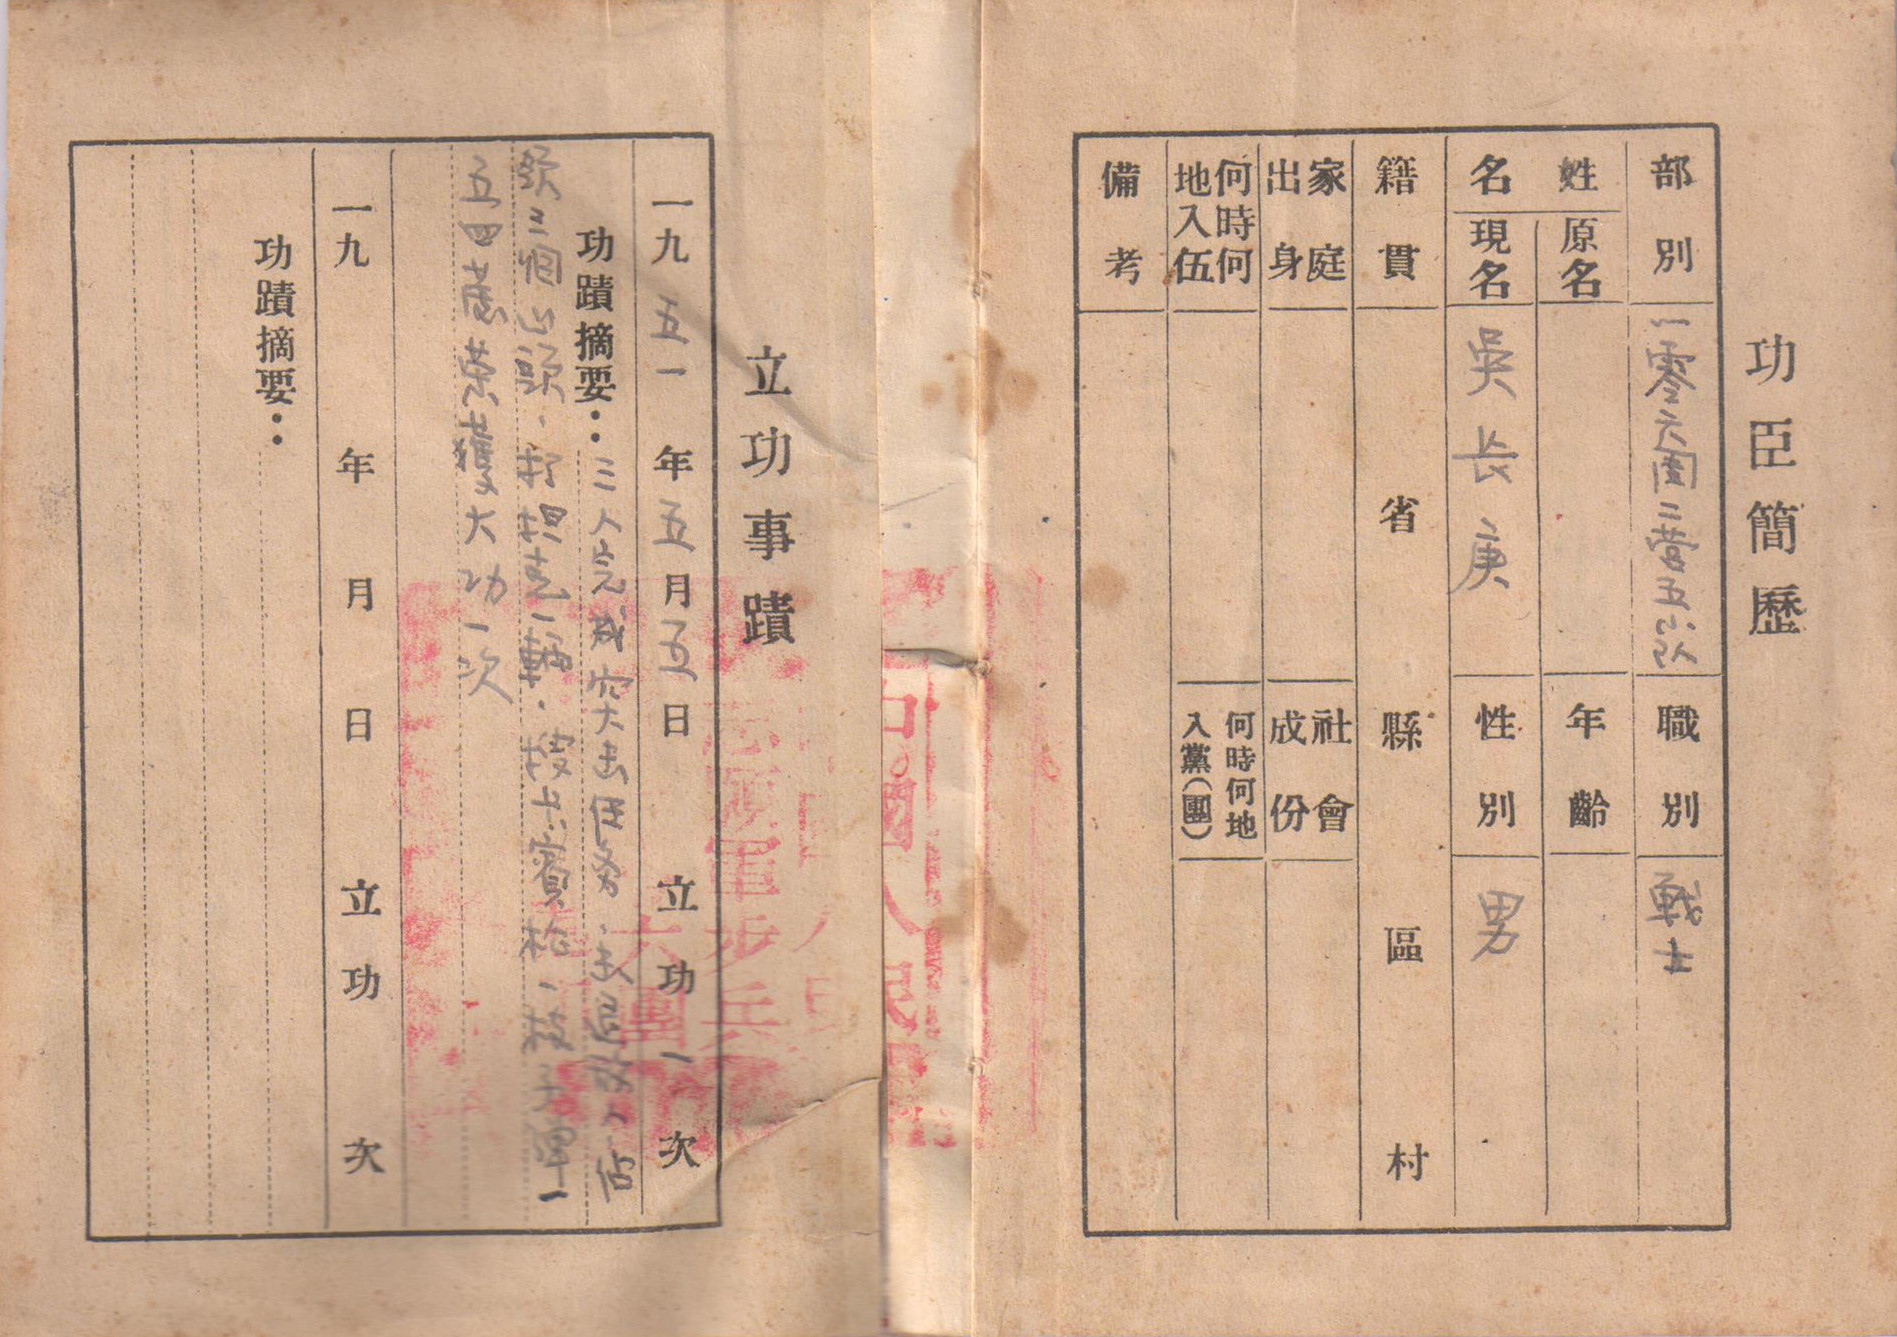 功臣簡歷
部別 一零六團二营五小队 職別 戰士
姓名 原名 年齡
現名 吳長庚 性別 男
籍貫 省 縣 區 村
家庭出身 社會成份
何時何地入伍 何時何地入黨(團)
備考
立功事蹟
一九五一年五月五日立功一次
功蹟摘要：三人完成突击任务.击毁敌人佔
领三個山頭.打坦克一輛.一枝子彈一
五四.荣獲大功一次
一九 年 月 日 立功 次
功蹟摘要：
中國人民
志願軍步兵
六團